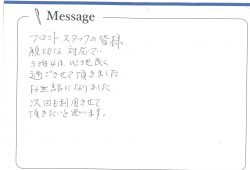 Message
フロントスタッフの皆様
親切な対応で
3泊4日、心地良く
過ごさせて頂きました
お世話になりました。
次回も利用させて
頂きたいと思います。